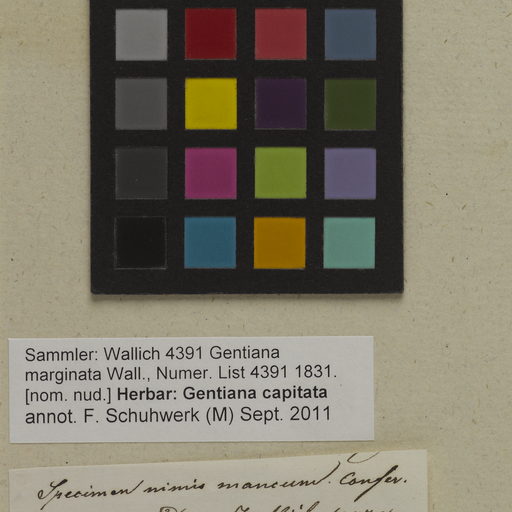 Sammler: Wallich 4391 Gentiana
marginata Wall., Numer. List 4391 1831.
[nom. nud.] Herbar: Gentiana capitata
annot. F. Schuhwerk (M) Sept. 2011
Specimen nimis mancum. Confer.